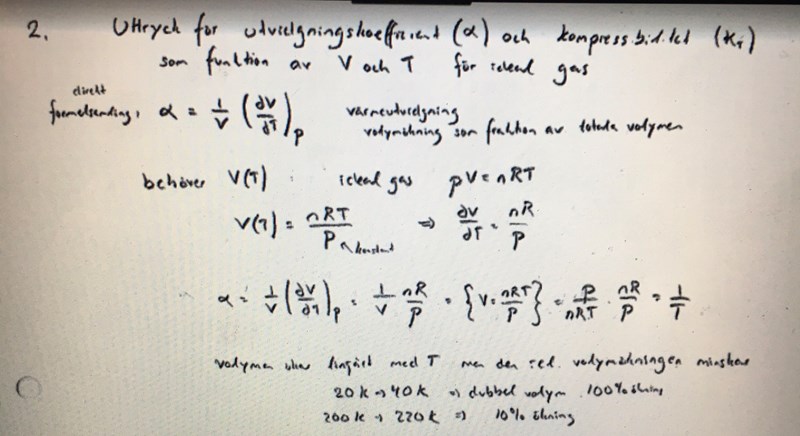 2. Uttryck för utvidgningskoefficient (α) och kompressibilitet (κ_T)
som funktion av V och T för ideal gas
direkt
formelsamling: α = 1/V (∂V/∂T)_p värmeutvidgning
volymökning som fraktion av totala volymen
behöver V(T) : ideal gas pV = nRT
V(T) = nRT/P konstant ⇒ ∂V/∂T = nR/P
α = 1/V (∂V/∂T)_p = 1/V nR/P = {V = nRT/P} = P/nRT · nR/P = 1/T
volymen ökar linjärt med T men den rel. volymökningen minskar
20 K → 40 K ⇒ dubbel volym 100% ökning
200 K → 220 K ⇒ 10% ökning